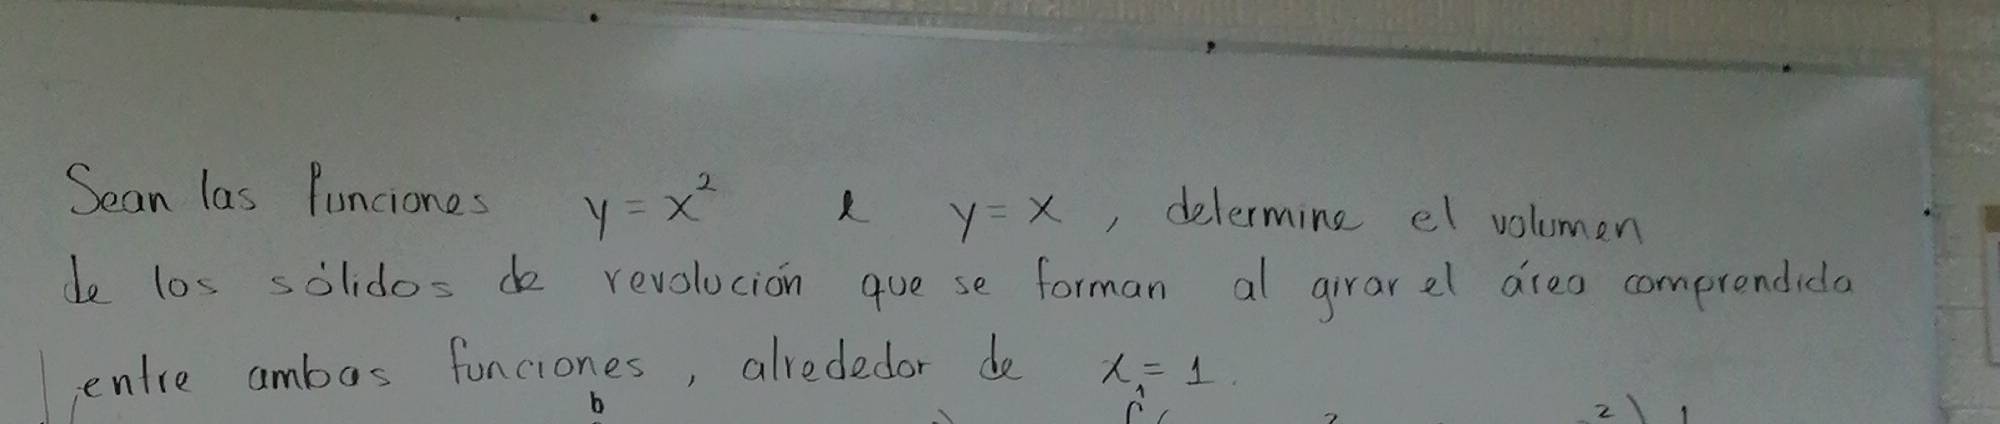 Sean las funciones y = x² e y = x , determine el volumen
de los sólidos de revolución que se forman al girar el área comprendida
entre ambas funciones , alrededor de x = 1 .
b